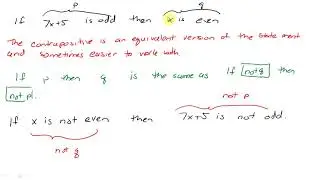 p q
If 7x+5 is odd then x is even
The contrapositive is an equivalent version of the statement
and sometimes easier to work with.
If p then q is the same as If not q then
not p.
not p
If x is not even then 7x+5 is not odd.
not q